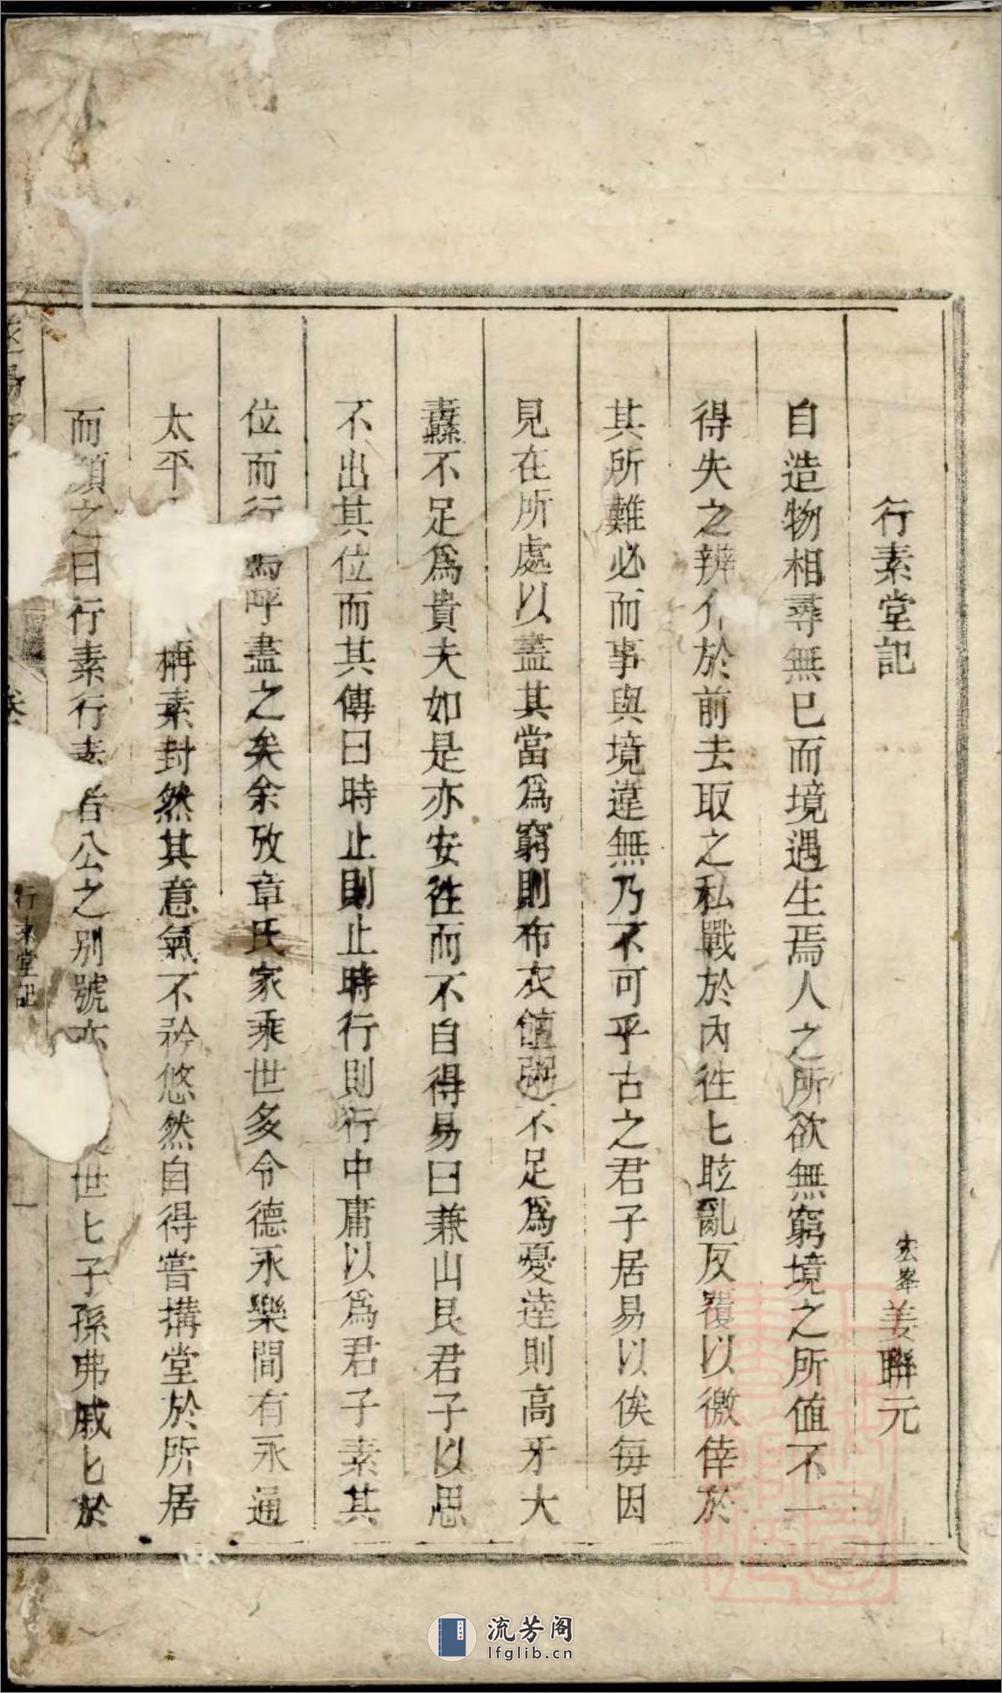 行素堂記
宏峯姜聯元
自造物相尋無已而境遇生焉人之所欲無窮境之所值不一
得失之辨介於前去取之私戰於內徃匕眩亂反覆以徼倖於
其所難必而事與境違無乃不可乎古之君子居易以俟毎因
見在所處以蓋其當爲窮則布衣饘粥不足爲憂逹則高牙大
纛不足爲貴夫如是亦安徃而不自得易曰兼山艮君子以思
不出其位而其傳曰時止則止時行則行中庸以爲君子素其
位而行嗚呼盡之矣余攷章氏家乘世多令德永樂間有永通
太平 稱素封然其意氣不矜悠然自得嘗搆堂於所居
而顏之曰行素行素者公之別號 世匕子孫弗戚匕於
卷
行素堂記
一
流芳阁
lfglib.cn